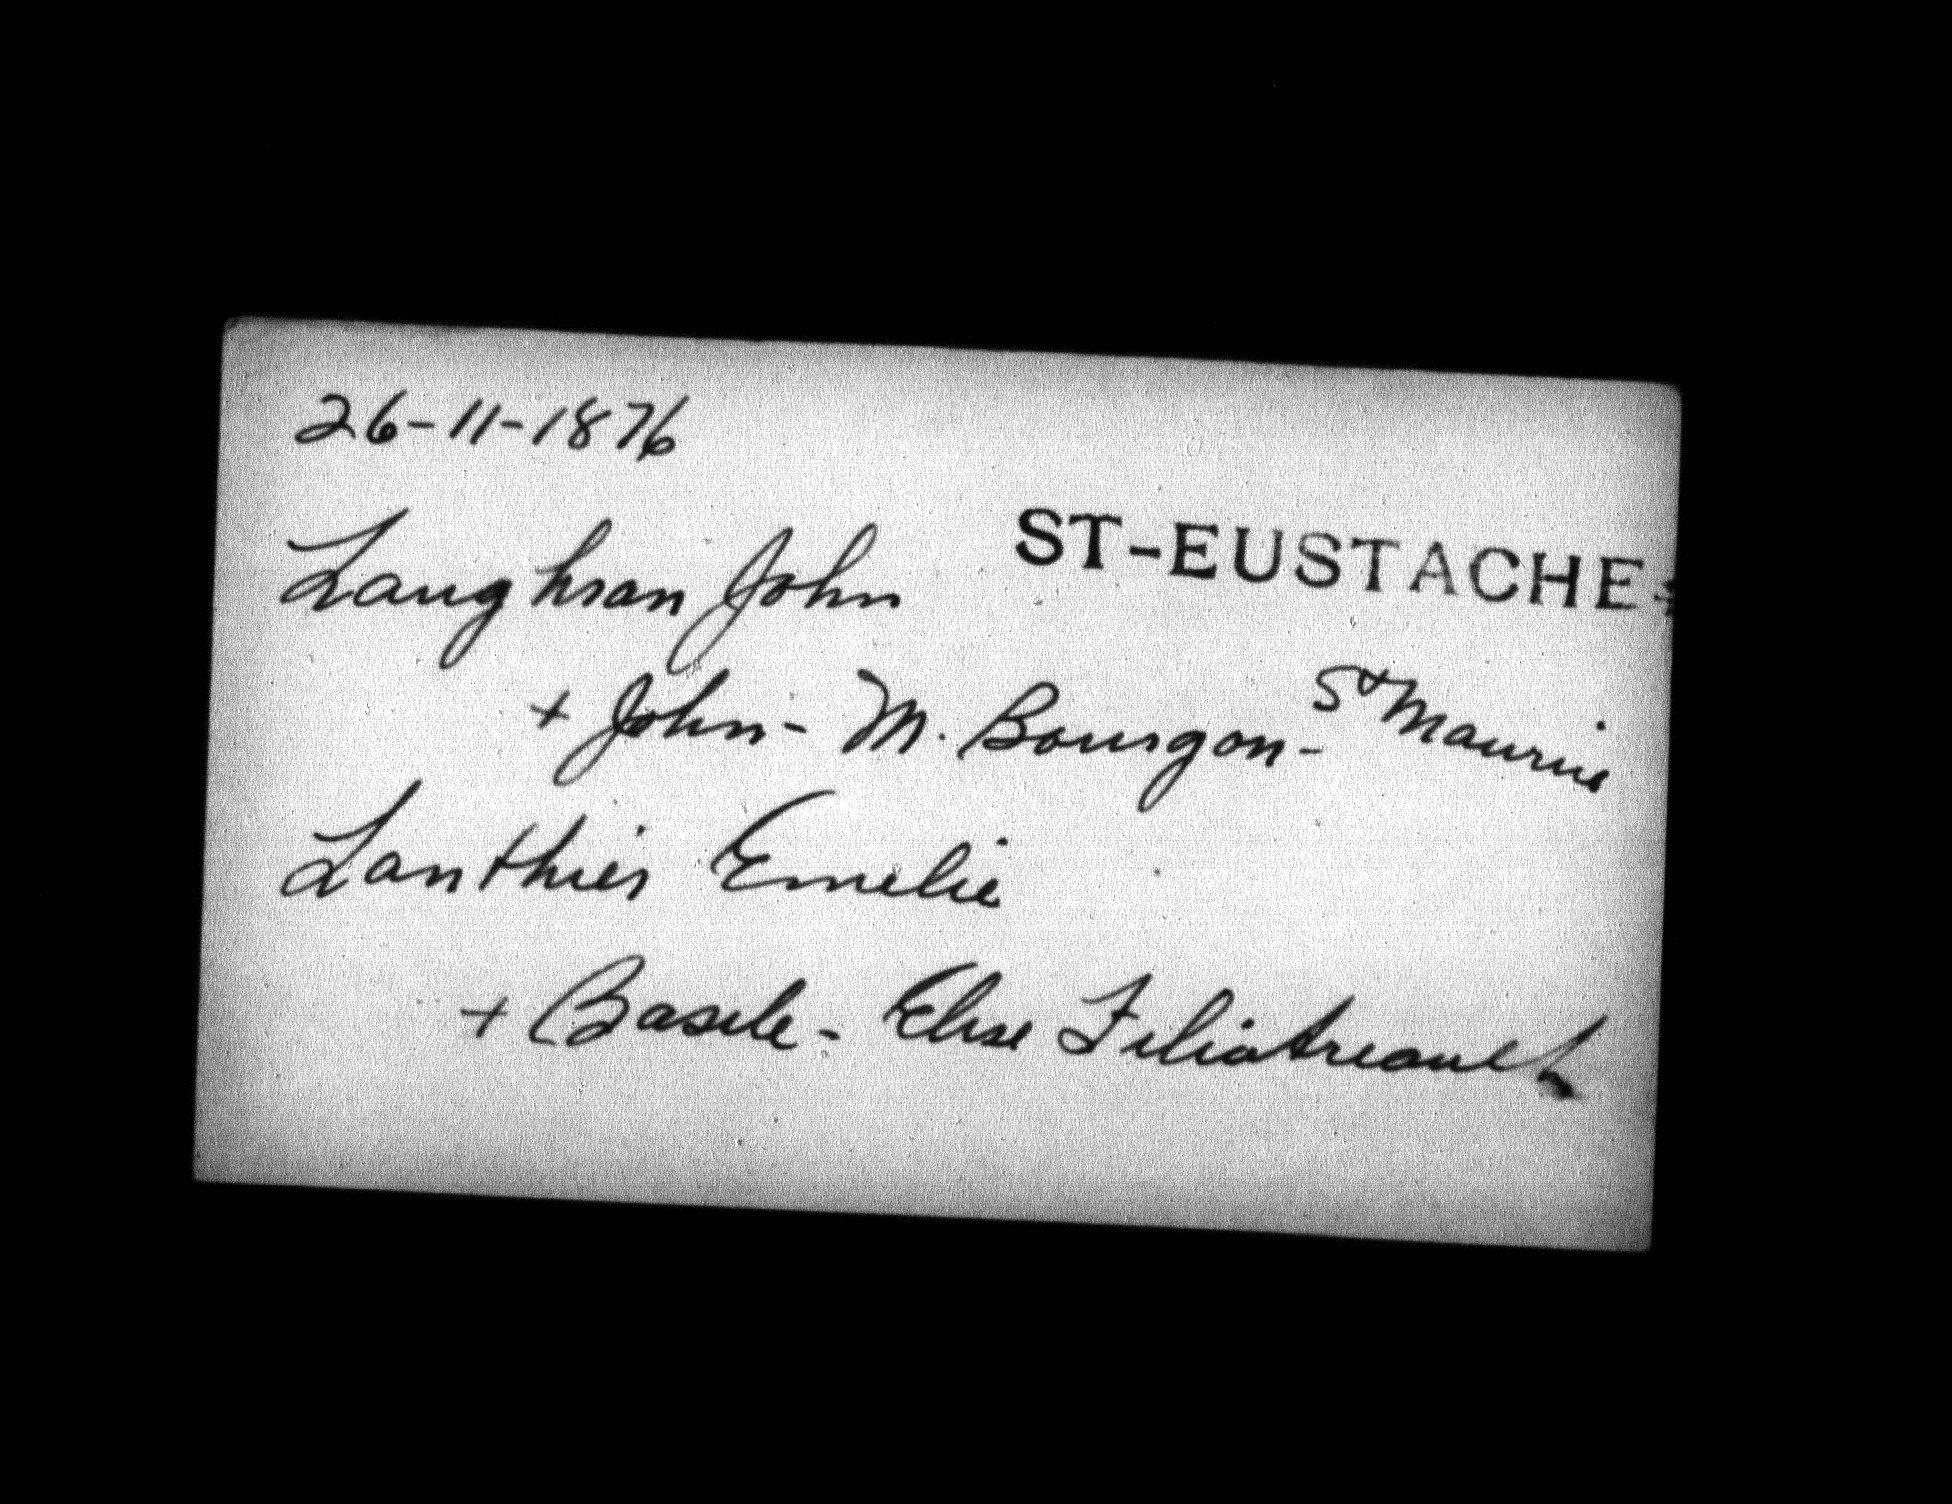 26-11-1876
Laughran John ST-EUSTACHE
+ John - M. Bourgon - St Maurice
Lanthier Emelie
+ Basile - Elise Filiatreault